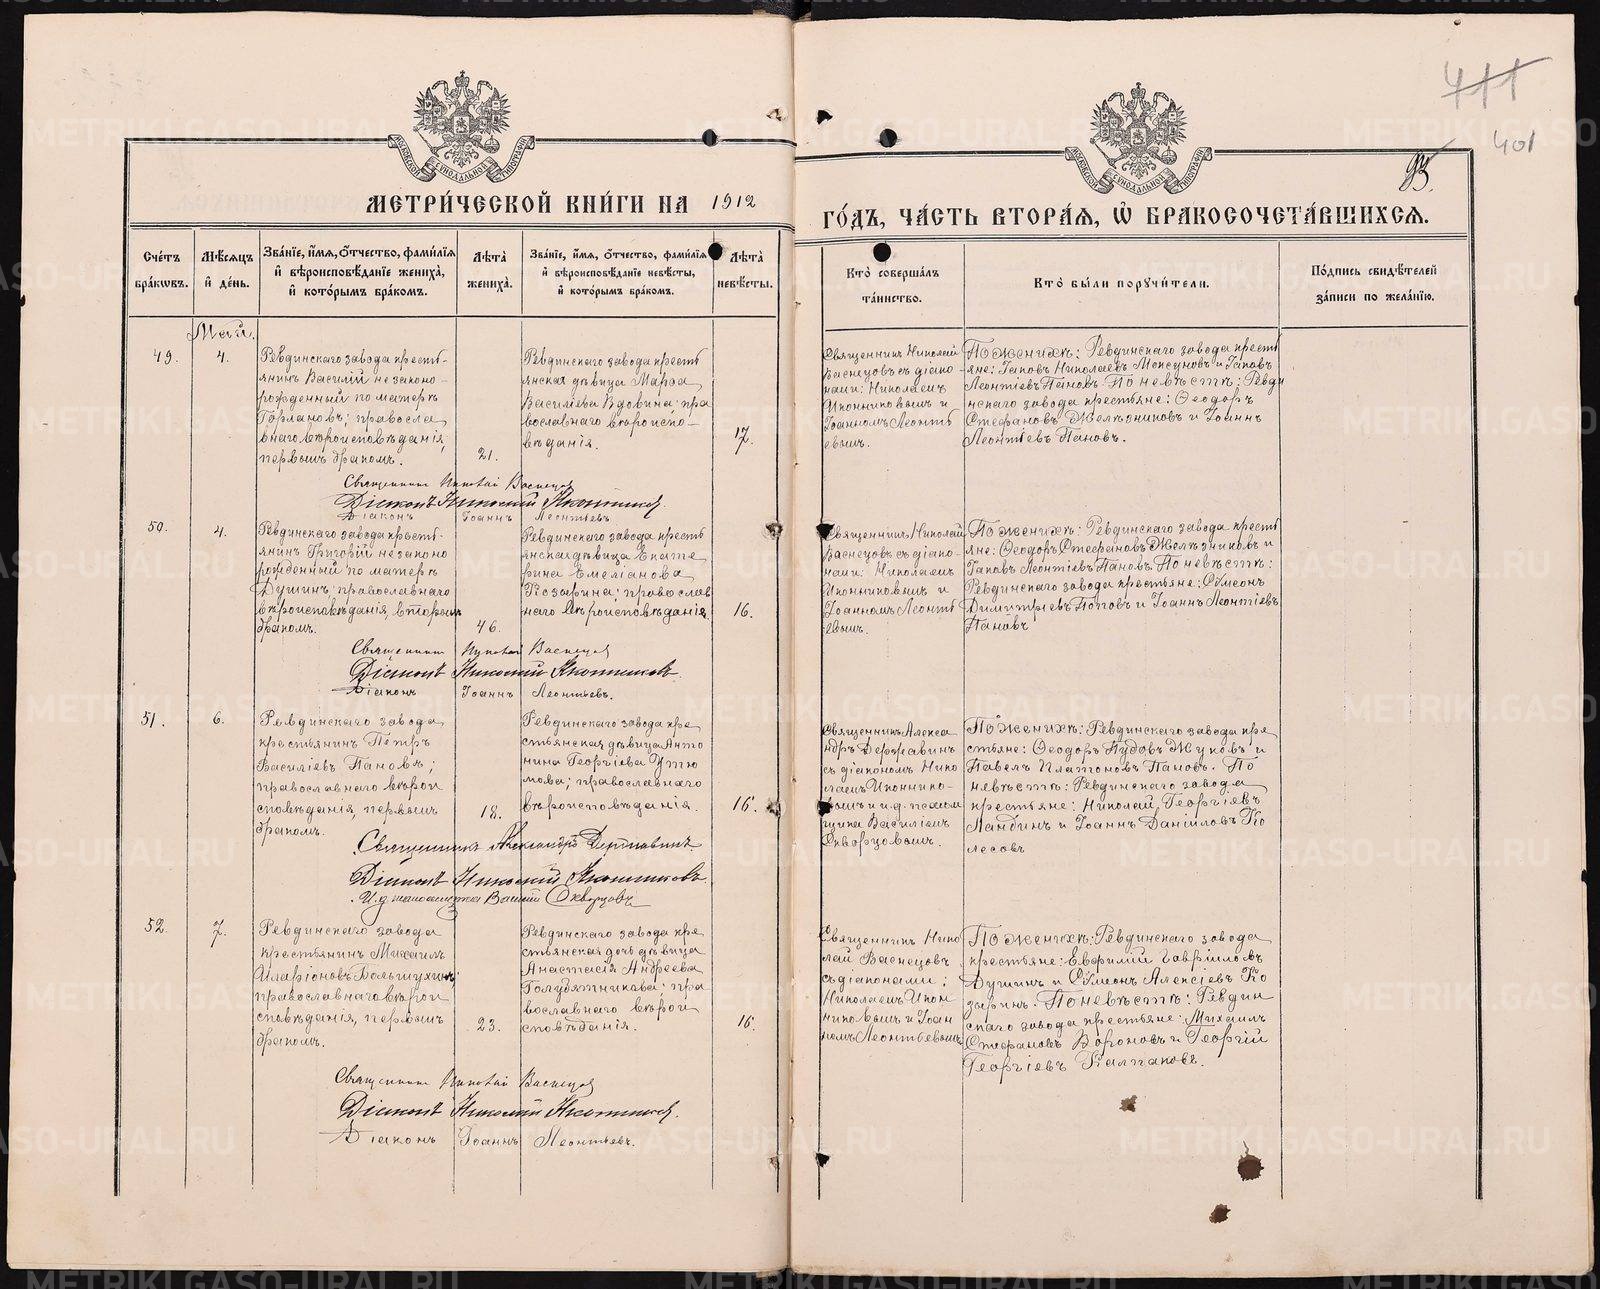 411
401
93.
МОСКОВСКОЙ СУНОДАЛЬНОЙ ТИПОГРАФІИ
МОСКОВСКОЙ СУНОДАЛЬНОЙ ТИПОГРАФІИ
МЕТРИ́ЧЕСКОЙ КНИ́ГИ НА 1912
ГО́ДЪ, ЧА́СТЬ ВТОРА́Я, Ѡ҆ БРАКОСОЧЕТА́ВШИХСЯ.
Сче́тъ бра́кѡвъ.
Мѣ́сяцъ и҆ де́нь.
Зва́нїе, и҆́мя, ѻ҆́тчество, фами́лїя и҆ вѣроисповѣ́данїе жениха̀, и҆ кото́рымъ бра́комъ.
Лѣ́та жениха̀.
Зва́нїе, и҆́мя, ѻ҆́тчество, фами́лїя и҆ вѣроисповѣ́данїе невѣ́сты, и҆ кото́рымъ бра́комъ.
Лѣ́та невѣ́сты.
Кто̀ соверша́лъ та́инство.
Кто̀ бы́ли поручи́тели.
По́дпись свидѣ́телей за́писи по жела́нїю.
Май.
49.
4.
Ревдинскаго завода кресть-
янинъ Василій незаконо-
рожденный по матери
Горлановъ; правосла
внаго вѣроисповѣданія,
первымъ бракомъ.
21.
Ревдинскаго завода кресть
янская дѣвица Марѳа
Васильева Вдовина; пра
вославнаго вѣроиспо-
вѣданія.
17.
Священникъ Николай
Васнецовъ съ діако-
нами: Николаемъ
Иконниковымъ и
Іоанномъ Леонть
евымъ.
По женихѣ: Ревдинскаго завода кресть
яне: Іаковъ Николаевъ Моксуновъ и Іаковъ
Леонтіевъ Пановъ. По невѣстѣ: Ревди
нскаго завода крестьяне: Ѳеодоръ
Стефановъ Желѣзниковъ и Іоаннъ
Леонтіевъ Пановъ.
Священникъ Николай Васнецов
Діаконъ Николай Иконников.
Діаконъ Іоаннъ Леонтьевъ
50.
4.
Ревдинскаго завода кресть-
янинъ Григорій незаконо
рожденный по матери
Душинъ; православнаго
вѣроисповѣданія, вторымъ
бракомъ.
46.
Ревдинскаго завода кресть
янская дѣвица Екате
рина Емеліанова
Козырина; православ
наго вѣроисповѣданія.
16.
Священникъ Николай
Васнецовъ съ діако-
нами: Николаемъ
Иконниковымъ и
Іоанномъ Леонть
евымъ.
По женихѣ: Ревдинскаго завода кресть
яне: Ѳеодоръ Стефановъ Желѣзниковъ и
Іаковъ Леонтіевъ Пановъ. По невѣстѣ:
Ревдинскаго завода крестьяне: Сѵмеонъ
Димитріевъ Поповъ и Іоаннъ Леонтіевъ
Пановъ
Священникъ Николай Васнецов
Діаконъ Николай Иконниковъ.
Діаконъ Іоаннъ Леонтьевъ.
51.
6.
Ревдинскаго завода
крестьянинъ Петръ
Василіевъ Пановъ;
православнаго вѣрои
сповѣданія, первымъ
бракомъ.
18.
Ревдинскаго завода кре
стьянская дѣвица Анто
нина Георгіева Утю
мова; православнаго
вѣроисповѣданія.
16.
Священникъ Алекса
ндръ Державинъ
съ діакономъ Нико
лаемъ Иконнико-
вымъ и и.д. псалом
щика Василіемъ
Скворцовымъ.
По женихѣ: Ревдинскаго завода кре
стьяне: Ѳеодоръ Пудовъ Жуковъ и
Павелъ Платоновъ Пановъ. По
невѣстѣ: Ревдинскаго завода
крестьяне: Николай Георгіевъ
Ландинъ и Іоаннъ Даніиловъ Ко
лесовъ
Священникъ Александръ Державинъ
Діаконъ Николай Иконниковъ.
И. д. псаломщика Василій Скворцовъ
52.
7.
Ревдинскаго завода
крестьянинъ Михаилъ
Иларіоновъ Большухинъ;
православнаго вѣрои
сповѣданія, первымъ
бракомъ.
23.
Ревдинскаго завода кре
стьянская дочь дѣвица
Анастасія Андреева
Голубятникова; пра
вославнаго вѣрои
сповѣданія.
16.
Священникъ Нико
лай Васнецовъ
съ діаконами:
Николаемъ Икон
никовымъ и Іоан
номъ Леонтьевымъ
По женихѣ: Ревдинскаго завода
крестьяне: Евфимій Гавріиловъ
Душинъ и Сѵмеонъ Алексіевъ Ко
зыринъ. По невѣстѣ: Ревдин
скаго завода крестьяне: Михаилъ
Стефановъ Вороновъ и Георгій
Георгіевъ Калпаковъ.
Священникъ Николай Васнецов
Діаконъ Николай Иконников.
Діаконъ Іоаннъ Леонтьевъ.
METRIKI.GASO-URAL.RU